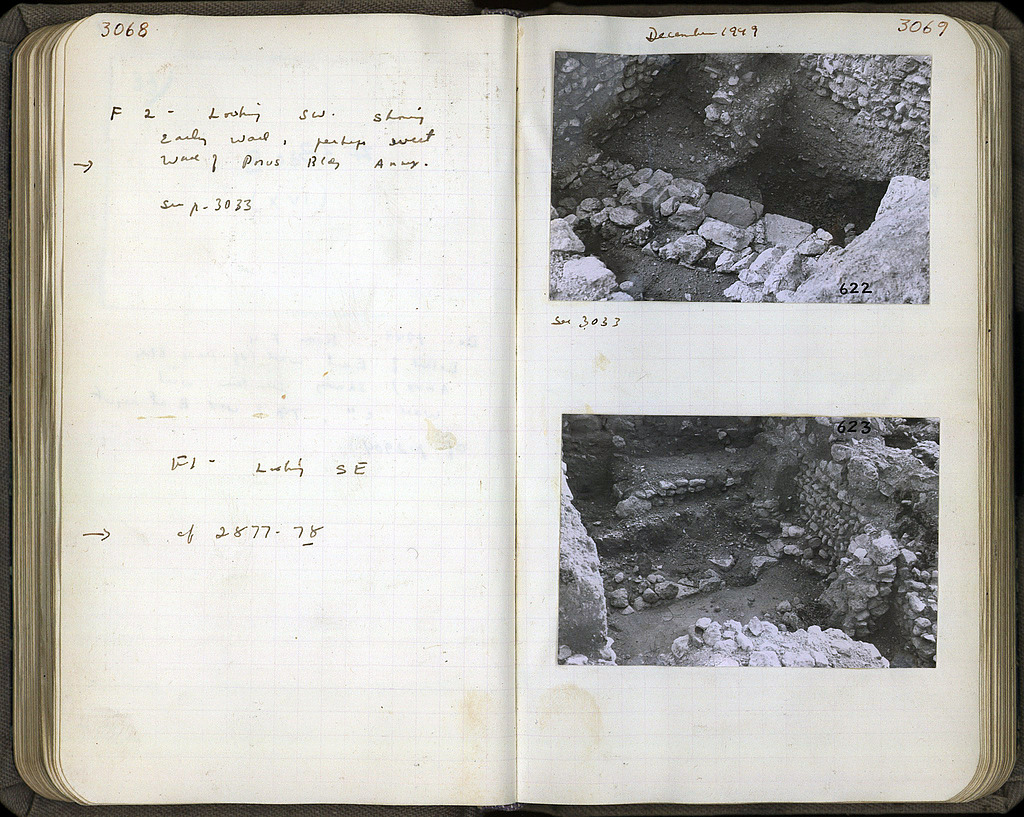 3068
F 2 - Looking SW. Showing
Early Wall, perhaps west
→ Wall of Poros Bldg Annex.
See p. 3033
F1 - Looking SE
→ cf 2877-78
December 1949
3069
622
See 3033
623